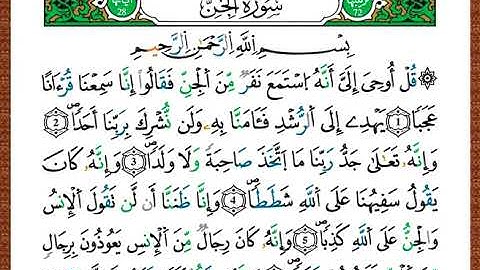 سُورَةُ الْجِنِّ
72
28
بِسْمِ اللَّهِ الرَّحْمَٰنِ الرَّحِيمِ
قُلْ أُوحِىَ إِلَىَّ أَنَّهُ ٱسْتَمَعَ نَفَرٌ مِّنَ ٱلْجِنِّ فَقَالُوٓا۟ إِنَّا سَمِعْنَا قُرْءَانًا
عَجَبًا 1 يَهْدِىٓ إِلَى ٱلرُّشْدِ فَـَٔامَنَّا بِهِۦ وَلَن نُّشْرِكَ بِرَبِّنَآ أَحَدًا 2
وَأَنَّهُۥ تَعَـٰلَىٰ جَدُّ رَبِّنَا مَا ٱتَّخَذَ صَـٰحِبَةً وَلَا وَلَدًا 3 وَأَنَّهُۥ كَانَ
يَقُولُ سَفِيهُنَا عَلَى ٱللَّهِ شَطَطًا 4 وَأَنَّا ظَنَنَّآ أَن لَّن تَقُولَ ٱلْإِنسُ
وَٱلْجِنُّ عَلَى ٱللَّهِ كَذِبًا 5 وَأَنَّهُۥ كَانَ رِجَالٌ مِّنَ ٱلْإِنسِ يَعُوذُونَ بِرِجَالٍ